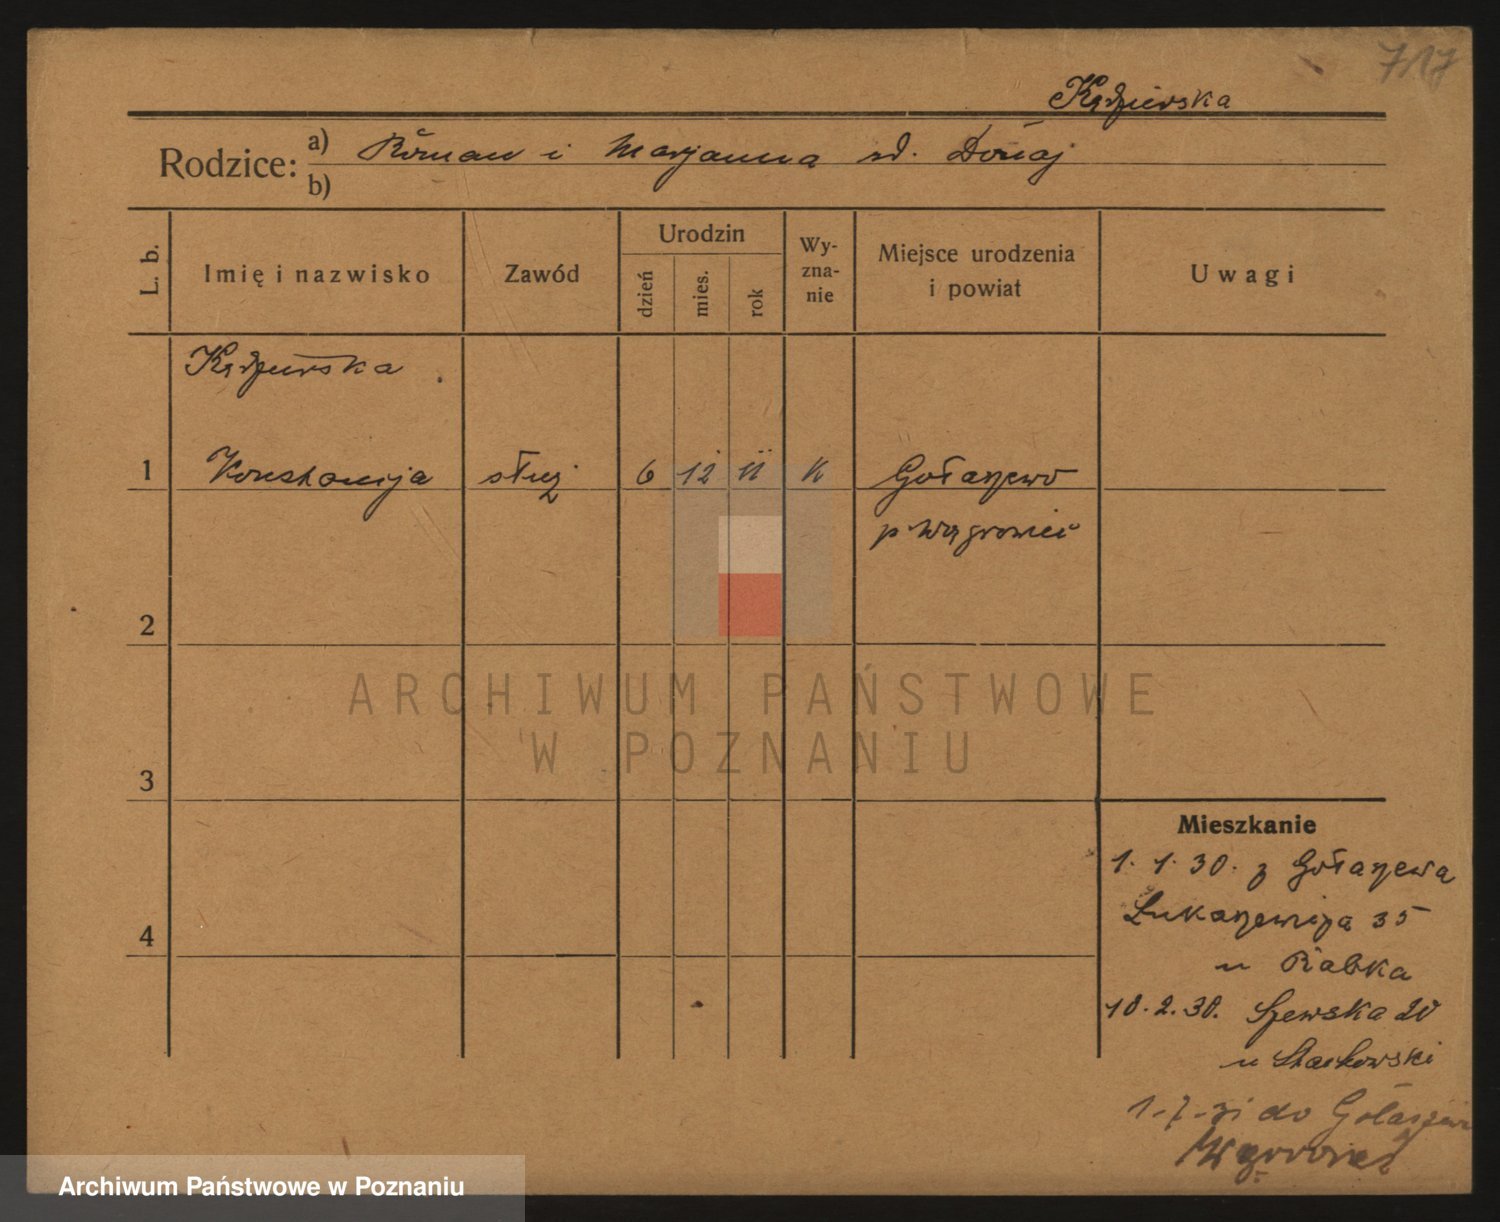 717
Kędzierska
Rodzice: a) Roman i Marjanna zd. Donaj
b)
L. b.
Imię i nazwisko
Zawód
Urodzin
dzień
mies.
rok
Wy-
zna-
nie
Miejsce urodzenia
i powiat
Uwagi
Kędzierska
1 Konstancja służ 6 12 11 K Gołaszewo
p Wągrowiec
2
3
4
Mieszkanie
1. 1. 30. z Gołaszewa
Łukaszewicza 35
u Rabka
10. 2. 30. Szewska 20
u
1-7-31 do Gołaszewa
Wągrowiec
ARCHIWUM PAŃSTWOWE
W POZNANIU
Archiwum Państwowe w Poznaniu